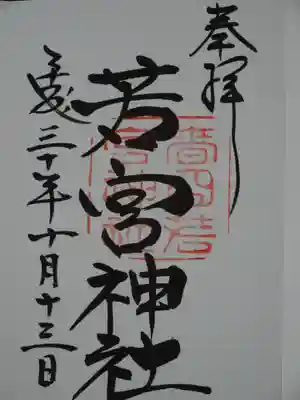 奉拝
若宮神社
平成三十年十月十三日